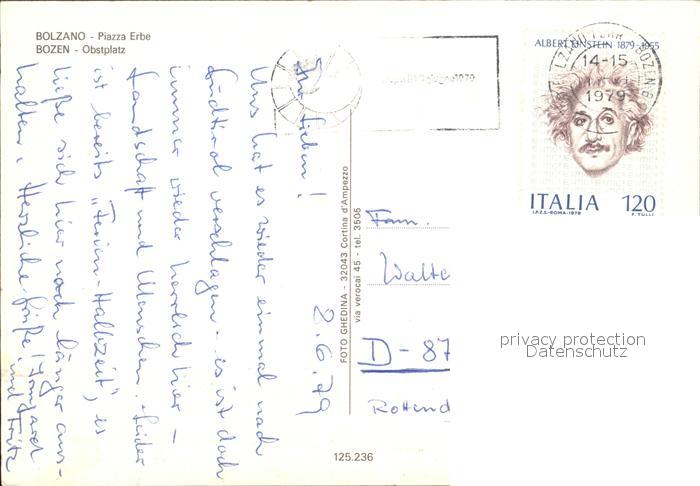 BOLZANO - Piazza Erbe
BOZEN - Obstplatz
ALBERT EINSTEIN 1879-1955
14-15
1979
ITALIA 120
I.P.Z.S.-ROMA-1979 F. TULLI
2.6.79
Ihr Lieben!
Uns hat es wieder einmal nach
Südtirol verschlagen - es ist doch
immer wieder herrlich hier -
Landschaft und Menschen. Leider
ist bereits "Ferien-Halbzeit", es
ließe sich hier noch länger aus-
halten. Herzliche Grüße! Margaret
und Fritz
FOTO GHEDINA - 32043 Cortina d'Ampezzo
via verocai 45 - tel. 3505
Fam.
Walte
D-87
Rottend
125.236
privacy protection
Datenschutz